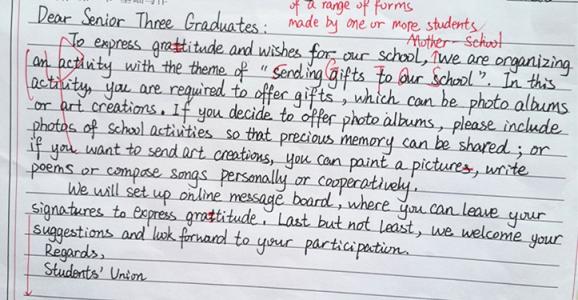 of a range of forms
made by one or more students
Dear Senior Three Graduates:
Mother-School
To express grattitude and wishes for our school, we are organizing
an activity with the theme of "Sending Gifts To Our School". In this
activity, you are required to offer gifts, which can be photo albums
or art creations. If you decide to offer photo albums, please include
photos of school activities so that precious memory can be shared; or
if you want to send art creations, you can paint a pictures, write
poems or compose songs personally or cooperatively.
We will set up online message board, where you can leave your
signatures to express grattitude. Last but not least, we welcome your
suggestions and look forward to your participation.
Regards,
Students' Union